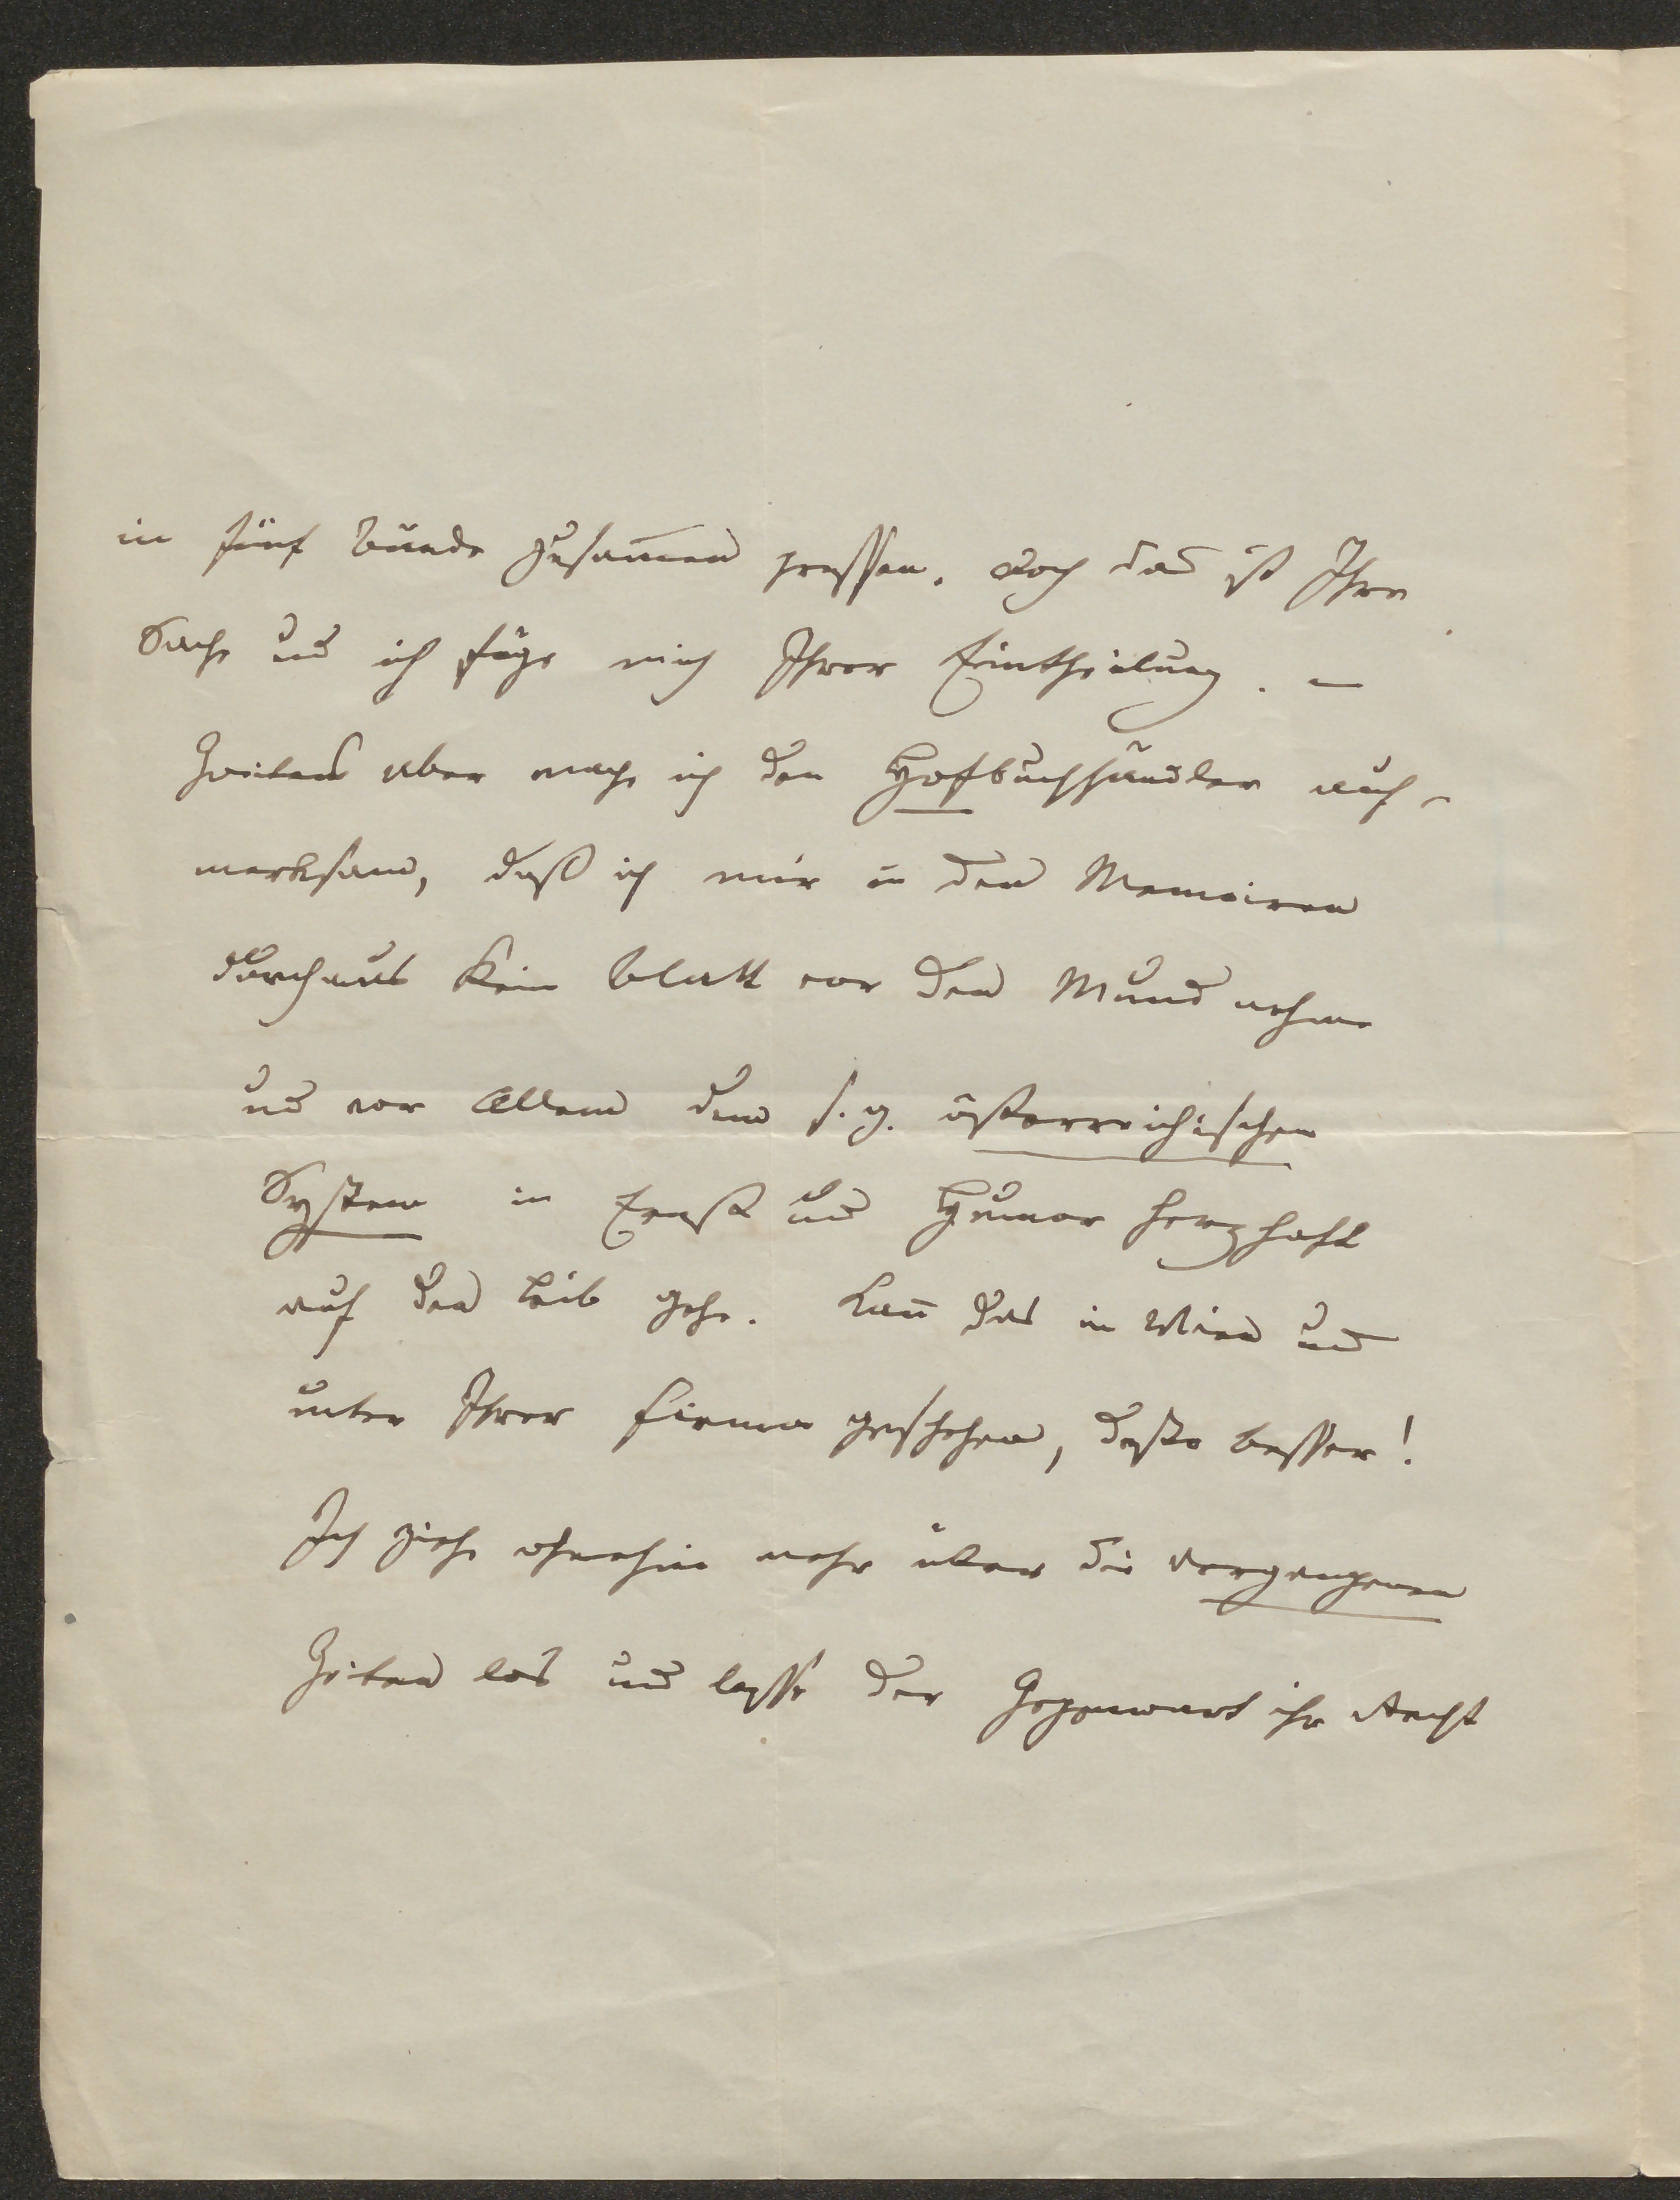 in fünf Bände zusam̄en pressen. Doch das ist Ihre
Sache und ich füge mich Ihrer Eintheilung. –
Zweitens aber mache ich den Hofbuchhändler auf-
merksam, daß ich mir in den Memoiren
durchaus kein Blatt vor den Mund nehme
und vor Allem dem s. g. österreichischen
System in Ernst und Humor herzhaft
auf den Leib gehe. Kan̄ das in Wien und
unter Ihrer Firma geschehen, desto besser!
Ich ziehe ohnehin mehr über die vergangenen
Zeiten los und lasse der Gegenwart ihr Recht